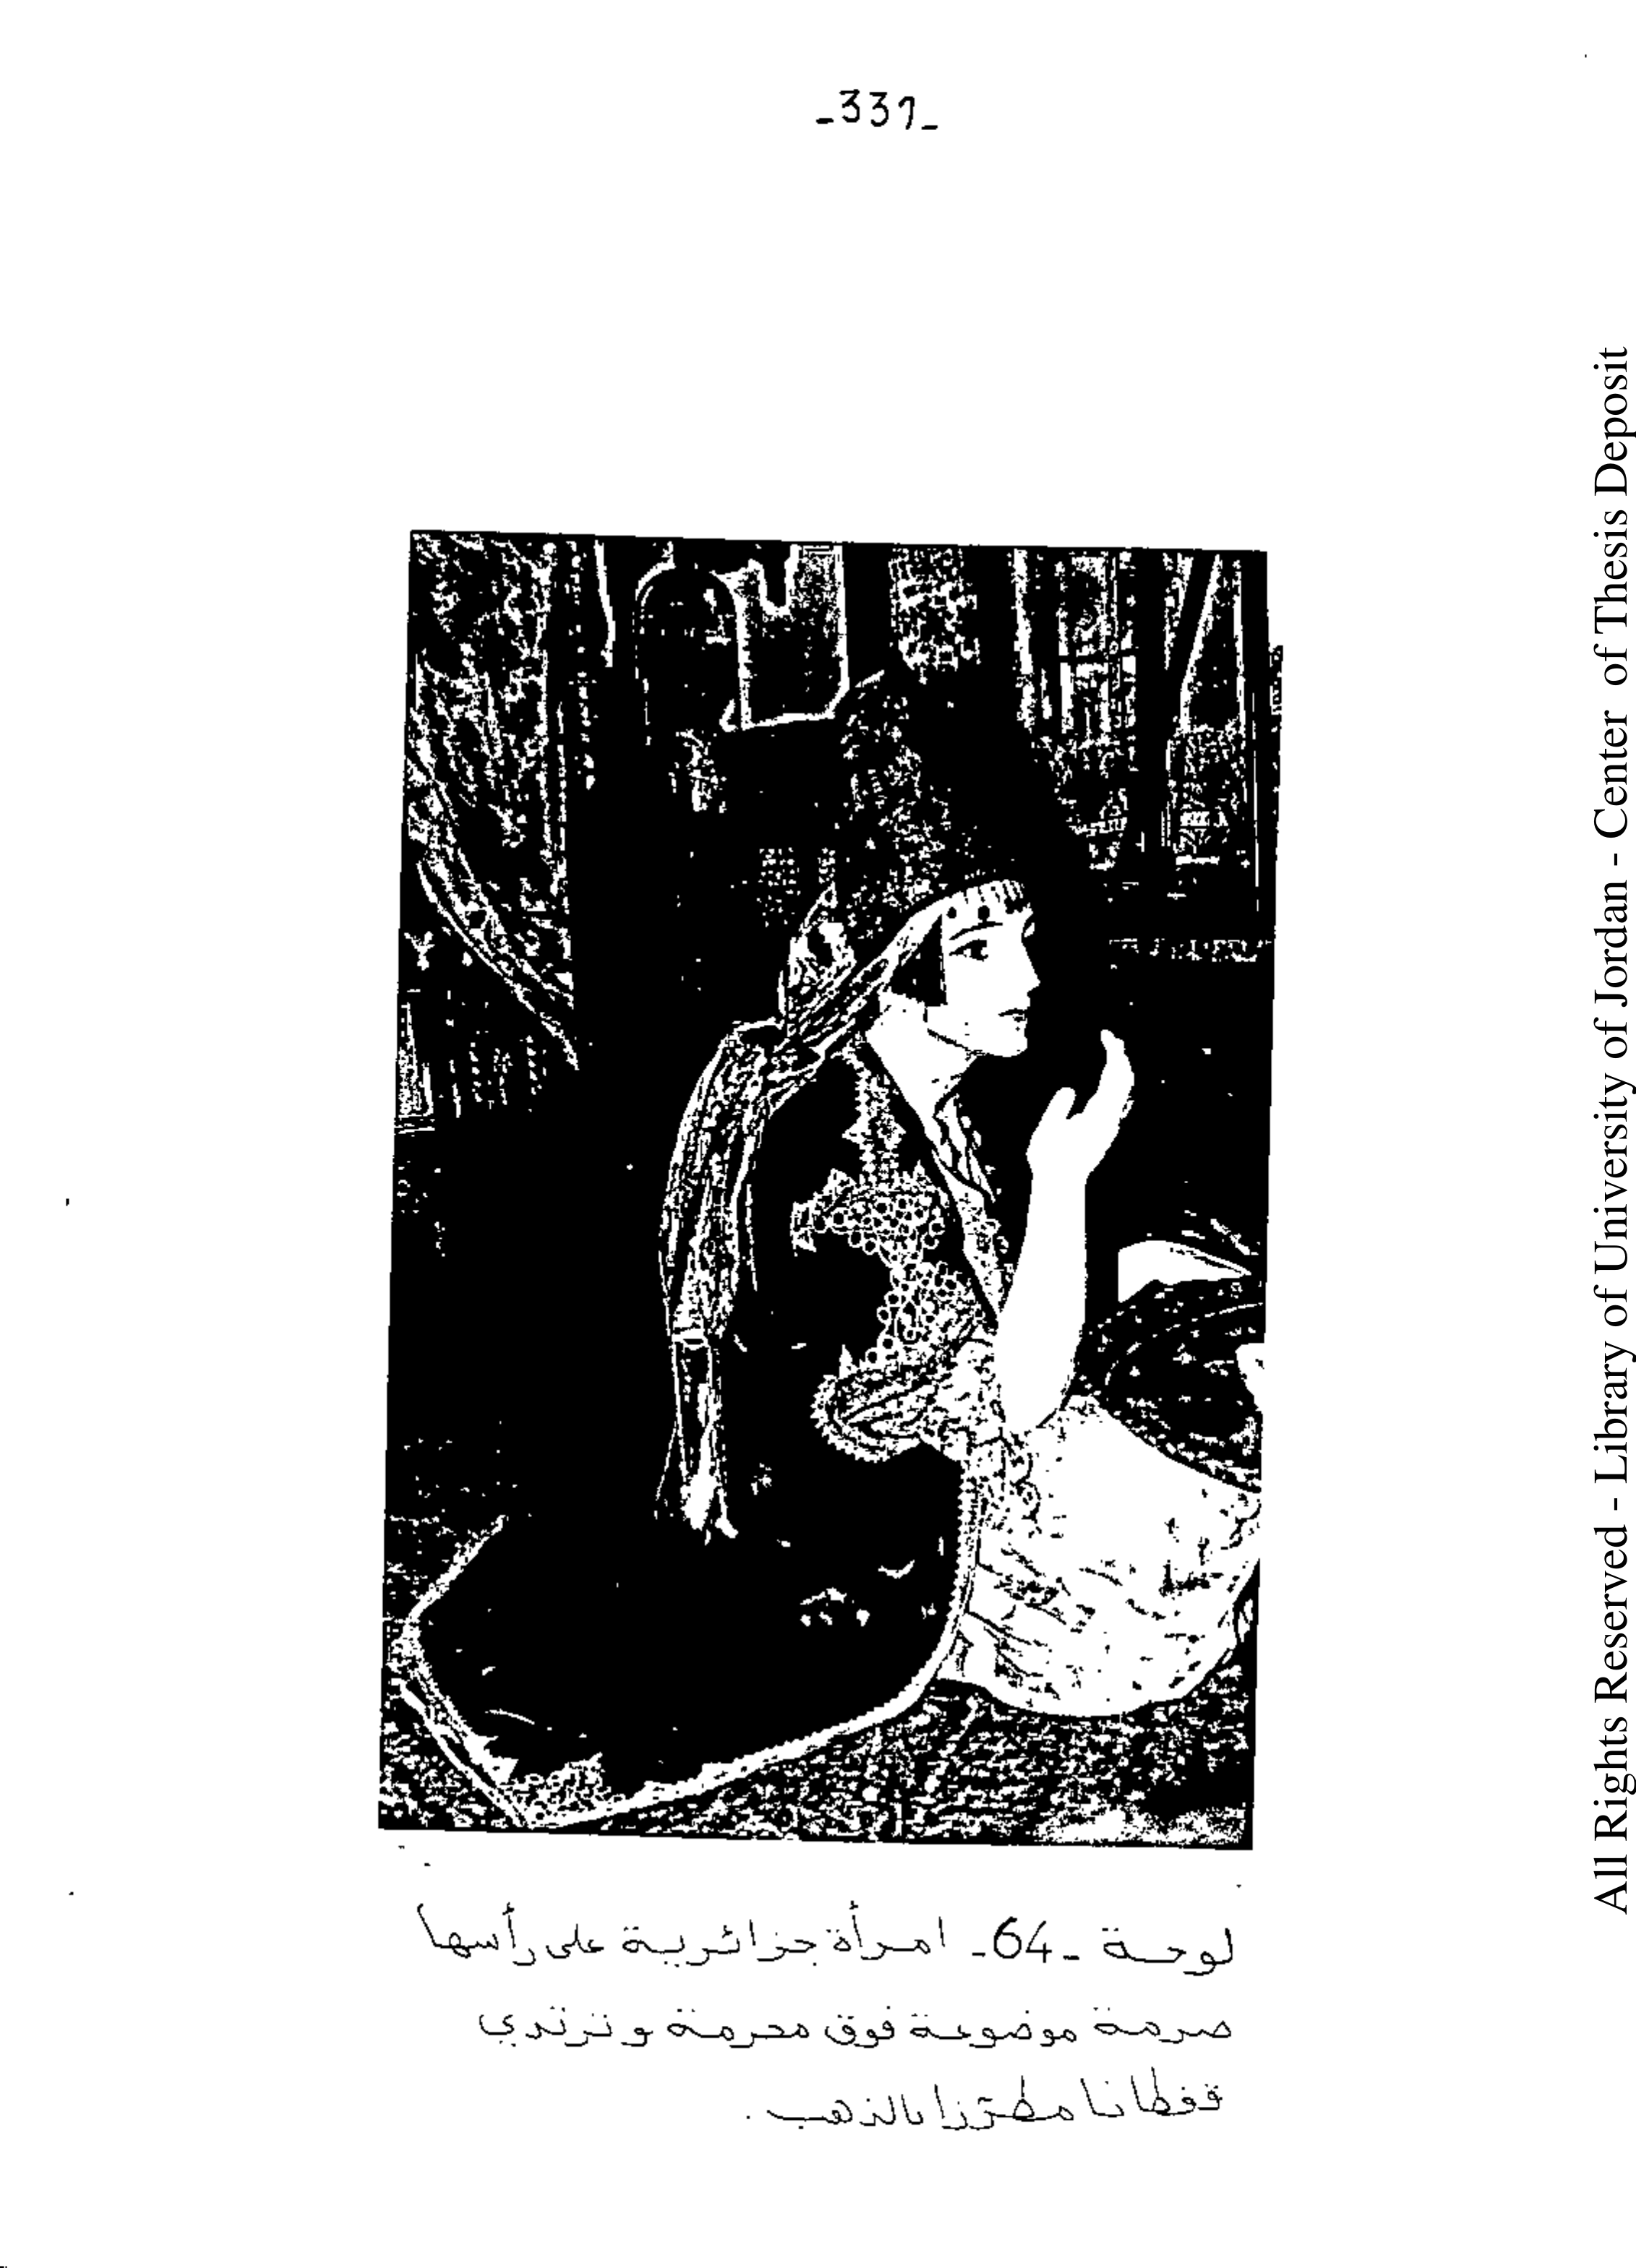 -331-
لوحة -64- امرأة جزائرية على رأسها
صرمة موضوعة فوق محرمة وترتدي
قفطانا مطرّزا بالذهب.
All Rights Reserved - Library of University of Jordan - Center of Thesis Deposit